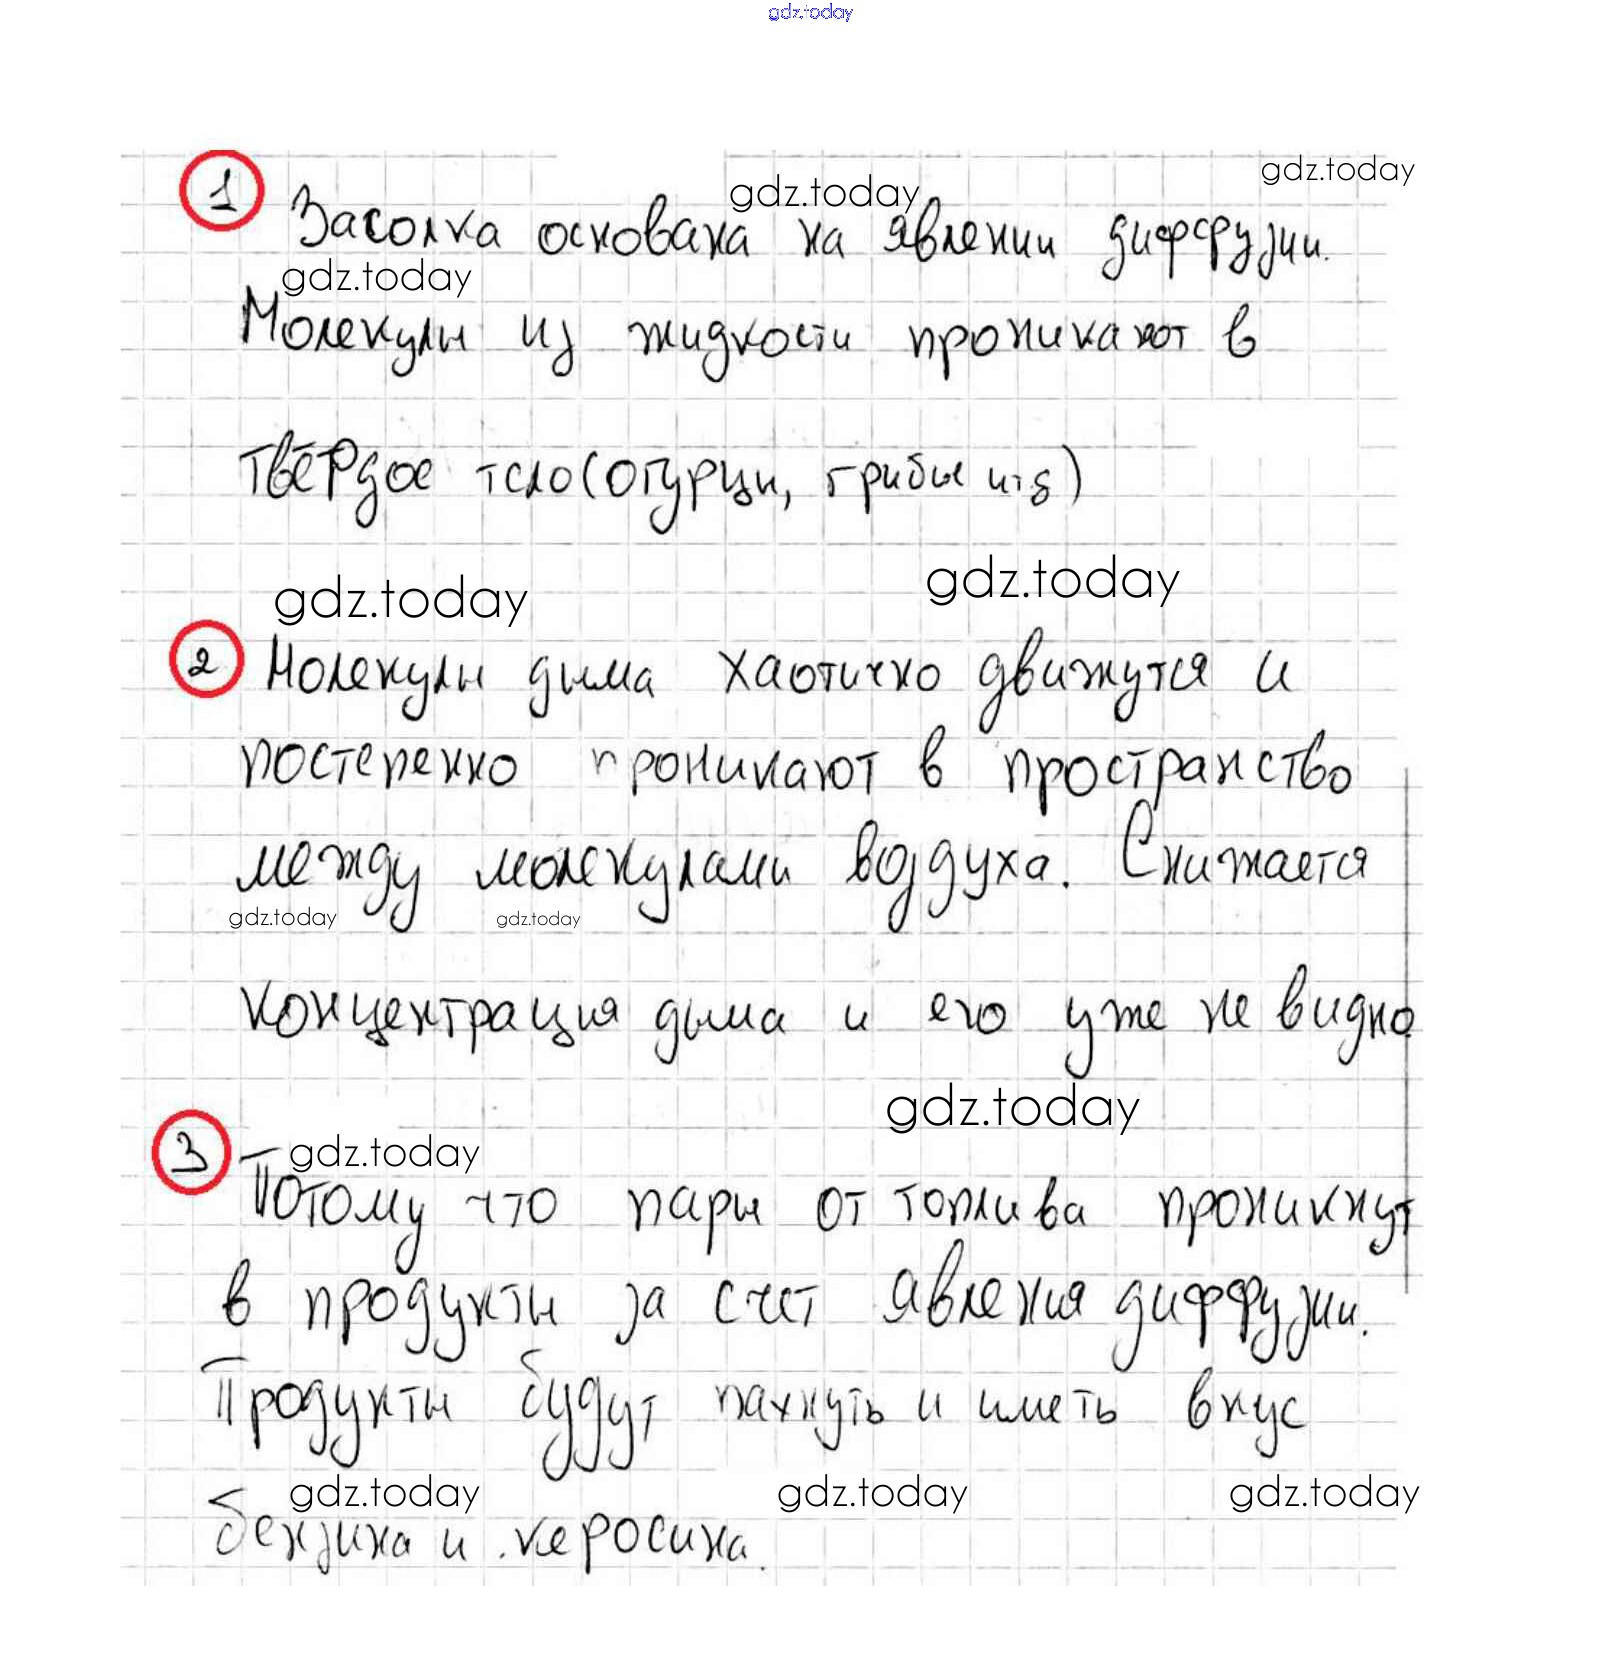 gdz.today
gdz.today
gdz.today
1 Засолка основана на явлении диффузии.
gdz.today
Молекулы из жидкости проникают в
твёрдое тело (огурцы, грибы
gdz.today
gdz.today
2 Молекулы дыма хаотично движутся и
постепенно проникают в пространство
между молекулами воздуха. Снижается
gdz.today gdz.today
концентрация дыма и его уже не видно
gdz.today
3 gdz.today
Потому что пары от топлива проникнут
в продукты за счет явления диффузии.
Продукты будут пахнуть и иметь вкус
gdz.today gdz.today gdz.today
бензина и керосина.